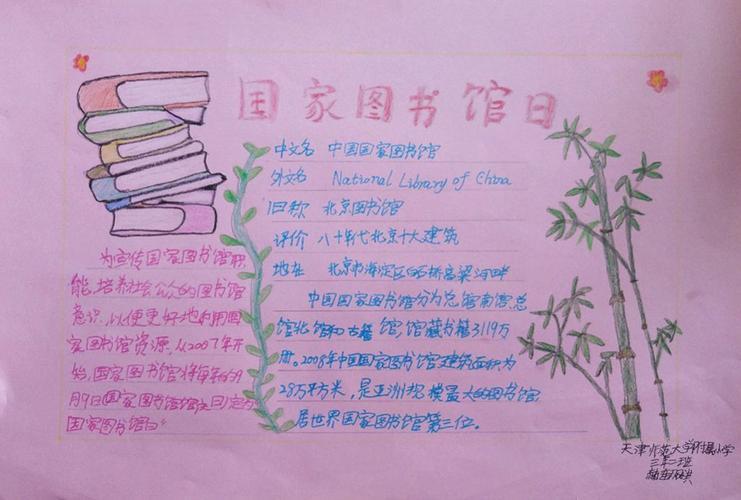 国家图书馆日
中文名 中国国家图书馆
外文名 National Library of China
旧称 北京图书馆
评价 八十年代北京十大建筑
地址 北京市海淀区白石桥高梁河畔
中国国家图书馆分为总馆南馆总
馆北馆和古籍馆,馆藏书籍3119万
册。2008年中国国家图书馆建筑面积为
28万平方米,是亚洲规模最大的图书馆,
居世界国家图书馆第三位。
为宣传国家图书馆职
能,培养社会公众的图书馆
意识,以便更好地利用国
家图书馆资源,从2007年开
始,国家图书馆将每年的9
月9日(国家图书馆馆庆日)定为
"国家图书馆日"
天津师范大学附属小学
三年二班